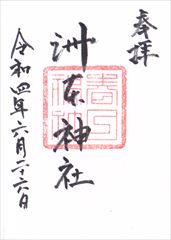 奉拝
洲本神社
令和四年六月二十六日